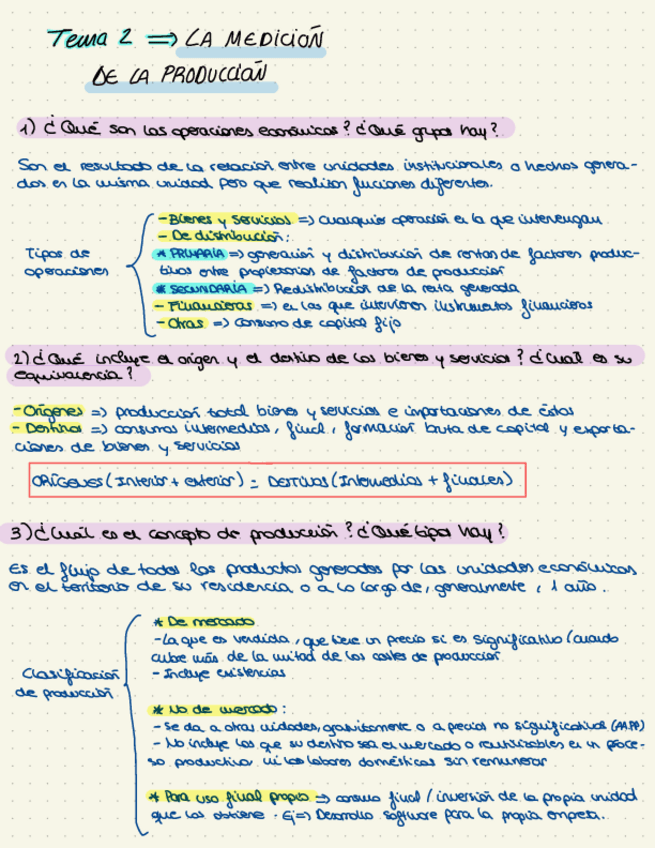 Tema 2 => LA MEDICIÓN
DE LA PRODUCCIÓN
1) ¿Qué son las operaciones económicas? ¿Qué grupos hay?
Son el resultado de la relación entre unidades institucionales o hechos genera-
dos en la misma unidad pero que realizan funciones diferentes.
Tipos de
operaciones
- Bienes y servicios => cualquier operación en la que intervengan
- De distribución:
* PRIMARIA => generación y distribución de rentas de factores produc-
tivos entre propietarios de factores de producción
* SECUNDARIA => Redistribución de la renta generada
- Financieras => en las que intervienen instrumentos financieros
- Otras => consumo de capital fijo
2) ¿Qué incluye el origen y el destino de los bienes y servicios? ¿Cuál es su
equivalencia?
- Orígenes => producción total bienes y servicios e importaciones de éstos
- Destinos => consumos intermedios, final, formación bruta de capital y exporta-
ciones de bienes y servicios
ORÍGENES (Interior + exterior) = DESTINOS (Intermedios + finales)
3) ¿Cuál es el concepto de producción? ¿Qué tipos hay?
Es el flujo de todos los productos generados por las unidades económicas
en el territorio de su residencia o a lo largo de, generalmente, 1 año.
Clasificación
de producción
* De mercado
- La que es vendida, que tiene un precio si es significativo (cuando
cubre más de la mitad de los costes de producción
- Incluye existencias
* No de mercado:
- Se da a otras unidades, gratuitamente o a precios no significativos (AAPP)
- No incluye los que su destino sea el mercado o reutilizables en un proce-
so productivo ni las labores domésticas sin remunerar
* Para uso final propio => consumo final / inversión de la propia unidad
que los obtiene. Ej => Desarrollo software para la propia empresa.